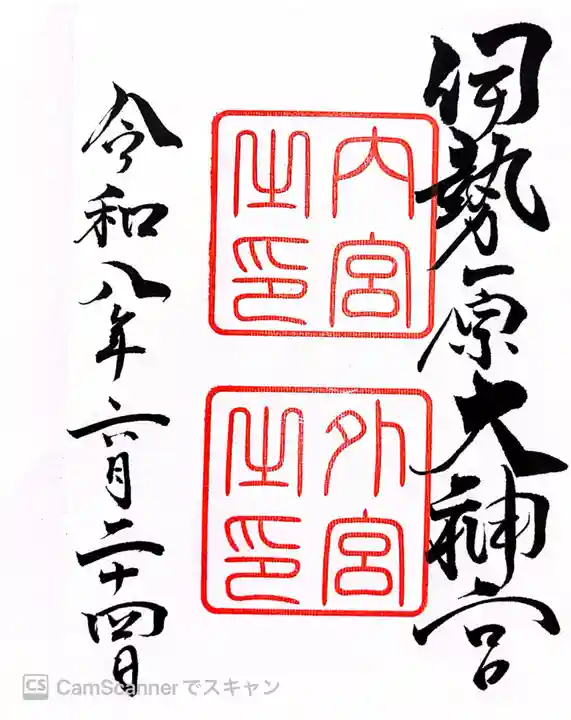 伊勢原大神宮
内宮
之印
外宮
之印
令和八年六月二十四日
CS CamScannerでスキャン